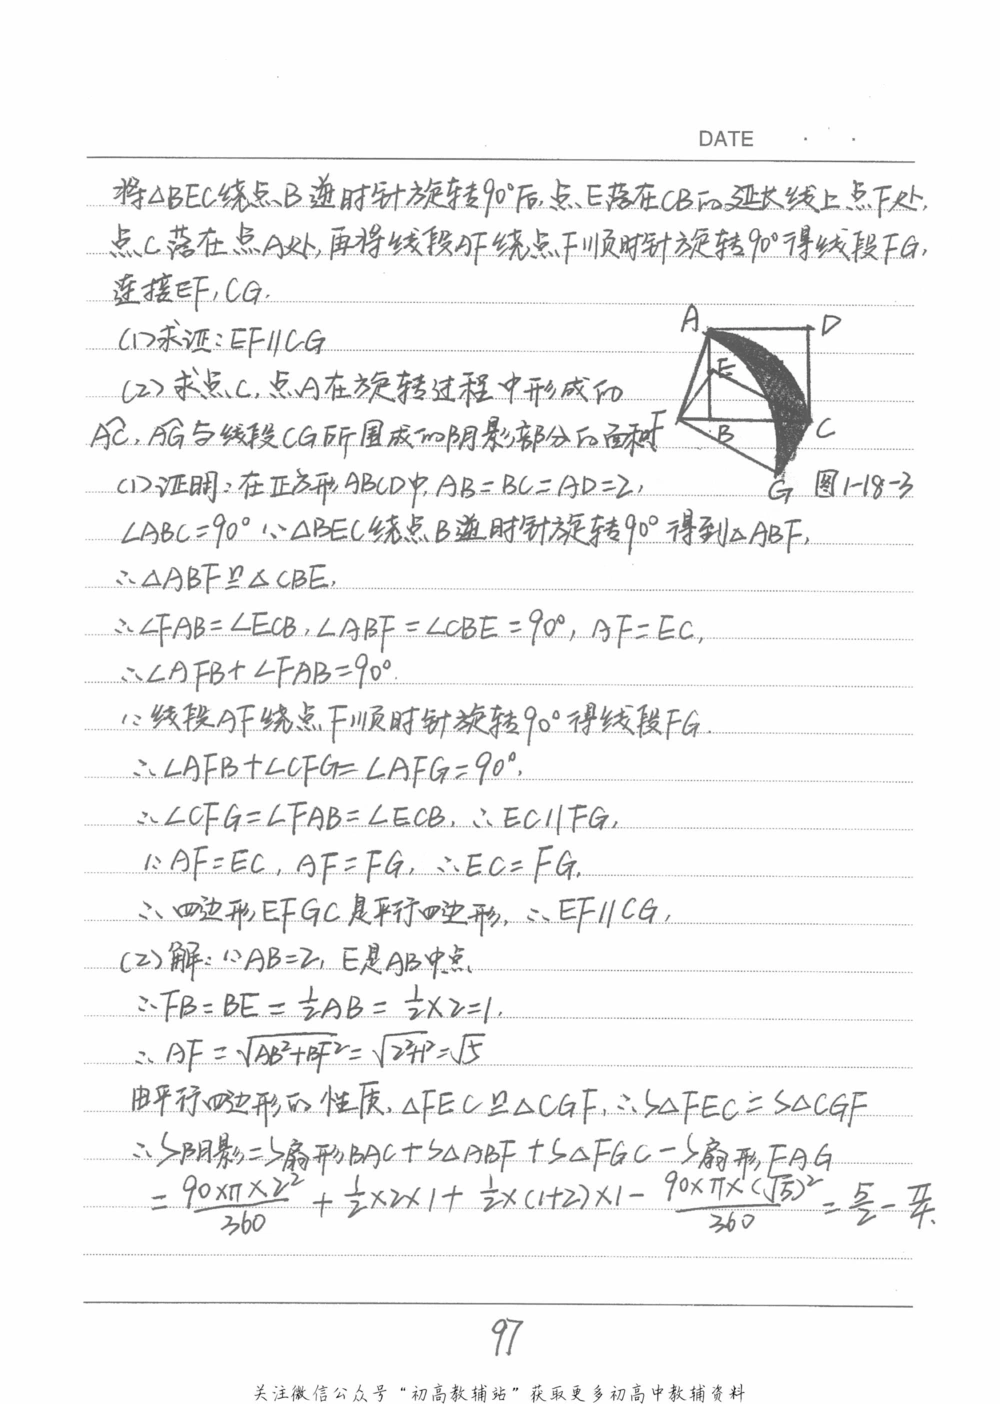 DATE · ·
将△BEC绕点B逆时针旋转90°后,点E落在CB的延长线上点F处,
点C落在点A处,再将线段AF绕点F顺时针旋转90°得线段FG,
连接EF,CG.
(1)求证:EF∥CG
(2)求点C,点A在旋转过程中形成的
A͡C,A͡G与线段CG所围成的阴影部分的面积
A D E F B C G 图1-18-3
(1)证明:在正方形ABCD中,AB=BC=AD=2,
∠ABC=90°∵△BEC绕点B逆时针旋转90°得到△ABF,
∴△ABF≌△CBE,
∴∠FAB=∠ECB,∠ABF=∠CBE=90°,AF=EC,
∴∠AFB+∠FAB=90°.
∵线段AF绕点F顺时针旋转90°得线段FG.
∴∠AFB+∠CFG=∠AFG=90°,
∴∠CFG=∠FAB=∠ECB,∴EC∥FG,
∵AF=EC,AF=FG,∴EC=FG,
∴四边形EFGC是平行四边形,∴EF∥CG,
(2)解:∵AB=2,E是AB中点
∴FB=BE=1/2AB=1/2×2=1.
∴AF=√(AB²+BF²)=√(2²+1²)=√5
由平行四边形的性质,△FEC≌△CGF,∴S△FEC=S△CGF
∴S阴影=S扇形BAC+S△ABF+S△FGC-S扇形FAG
=90×π×2²/360+1/2×2×1+1/2×(1+2)×1-90×π×(√5)²/360=5/2-π/4.
97
关注微信公众号“初高教辅站”获取更多初高中教辅资料